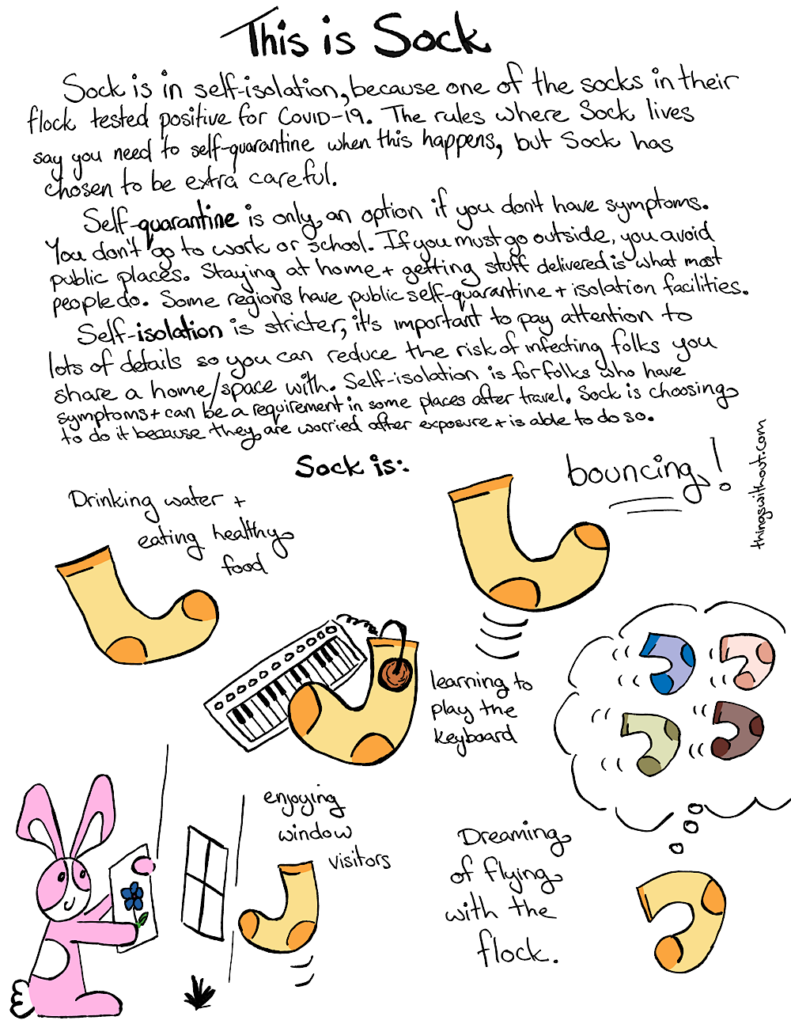 This is Sock
Sock is in self-isolation, because one of the socks in their
flock tested positive for COVID-19. The rules where Sock lives
say you need to self-quarantine when this happens, but Sock has
chosen to be extra careful.
Self-quarantine is only an option if you don't have symptoms.
You don't go to work or school. If you must go outside, you avoid
public places. Staying at home + getting stuff delivered is what most
people do. Some regions have public self-quarantine + isolation facilities.
Self-isolation is stricter, it's important to pay attention to
lots of details so you can reduce the risk of infecting folks you
share a home/space with. Self-isolation is for folks who have
symptoms + can be a requirement in some places after travel. Sock is choosing
to do it because they are worried after exposure + is able to do so.
Sock is:
bouncing!
thingswithout.com
Drinking water +
eating healthy
food
learning to
play the
keyboard
enjoying
window
visitors
Dreaming
of flying
with the
flock.